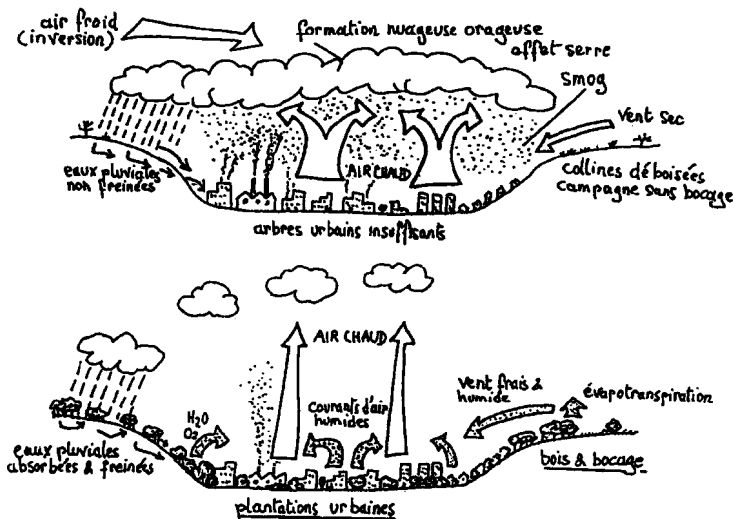 air froid
(inversion)
formation nuageuse orageuse
effet serre
smog
vent sec
eaux pluviales
non freinées
AIR CHAUD
collines déboisées
campagne sans bocage
arbres urbains insuffisants
AIR CHAUD
H2O
O2
courants d'air
humides
vent frais &
humide
évapotranspiration
eaux pluviales
absorbées & freinées
bois & bocage
plantations urbaines